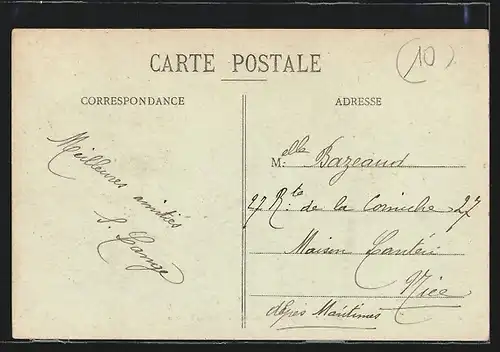 CARTE POSTALE
(10)
CORRESPONDANCE
Meilleures amitiés
S.
ADRESSE
Melle Bazeaud
27 Rte de la Corniche 27
Maison
Nice
Alpes Maritimes